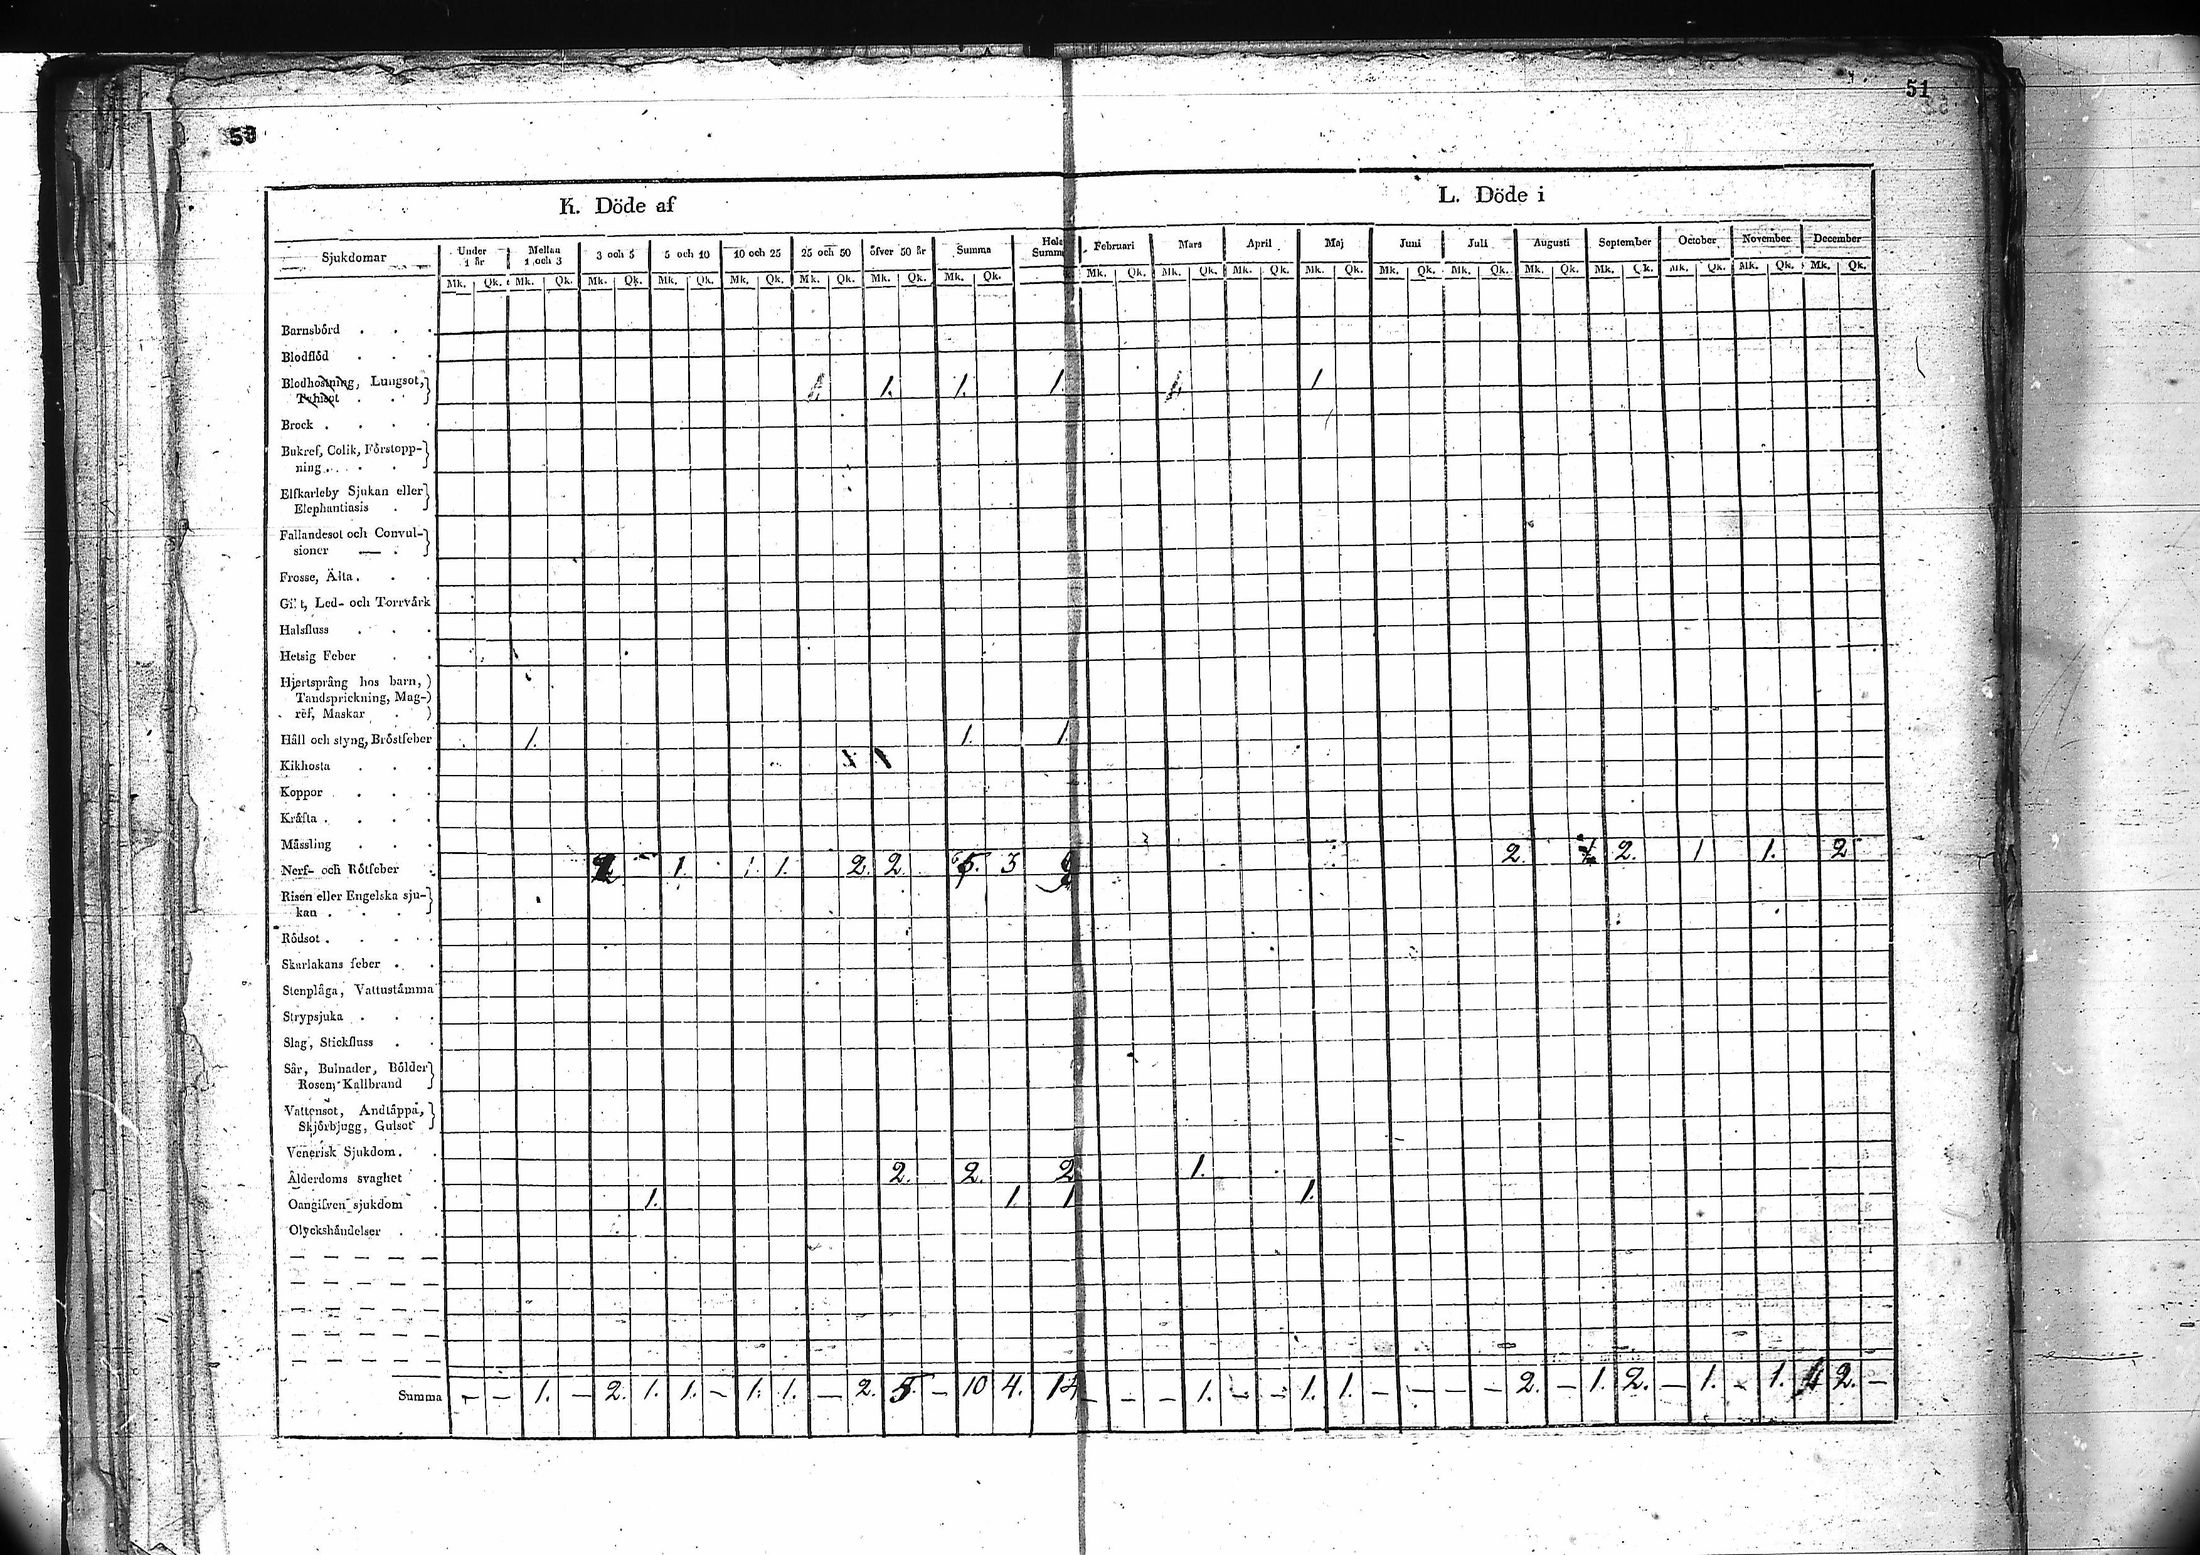 50
51
K. Döde af
L. Döde i
Sjukdomar Under 1 år Mellan 1 och 3 3 och 5 5 och 10 10 och 25 25 och 50 öfver 50 år Summa Hela Summa Februari Mars April Maj Juni Juli Augusti September October November December
Mk. Qk. Mk. Qk. Mk. Qk. Mk. Qk. Mk. Qk. Mk. Qk. Mk. Qk. Mk. Qk. Mk. Qk. Mk. Qk. Mk. Qk. Mk. Qk. Mk. Qk. Mk. Qk. Mk. Qk. Mk. Qk. Mk. Qk. Mk. Qk. Mk. Qk.
Barnsbörd
Blodflöd
Blodhostning, Lungsot, 1. 1. 1. 1
Brock
Bukref, Colik, Förstopp-
ning
Elfkarleby Sjukan eller
Elephantiasis
Fallandesot och Convul-
sioner
Frosse, Älta
Gikt, Led- och Torrvärk
Halsfluss
Hetsig Feber
Hjertsprång hos barn,
Tandsprickning, Mag-
ref, Maskar
Håll och styng, Bröstfeber 1. 1. 1
Kikhosta
Koppor
Kräfta
Mässling
Nerf- och Rötfeber 2 — 1. 1. 1. 2. 2. 3 2. 2. 1 1. 2
Risen eller Engelska sju-
kan
Rödsot
Skarlakans feber
Stenplåga, Vattustämma
Strypsjuka
Slag, Stickfluss
Sår, Bulnader, Bölder
Rosen, Kallbrand
Vattensot, Andtäppa,
Skjörbjugg, Gulsot
Venerisk Sjukdom
Ålderdoms svaghet 2. 2. 2 1.
Oangifven sjukdom 1. 1. 1 1.
Olyckshändelser
Summa — — 1. — 2. 1. 1. — 1. 1. — 2. 5. — 10 4. 14 — — — 1. — — 1. 1. — — — — 2. — 1. 2. — 1. — 1. 2. —